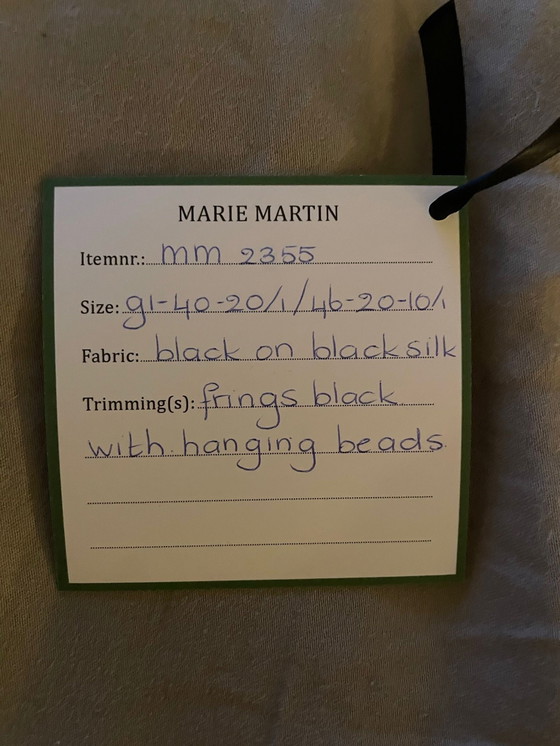 MARIE MARTIN
Itemnr.: mm 2355
Size: g1-40-20/1/46-20-10/1
Fabric: black on black silk
Trimming(s): frings black
with hanging beads